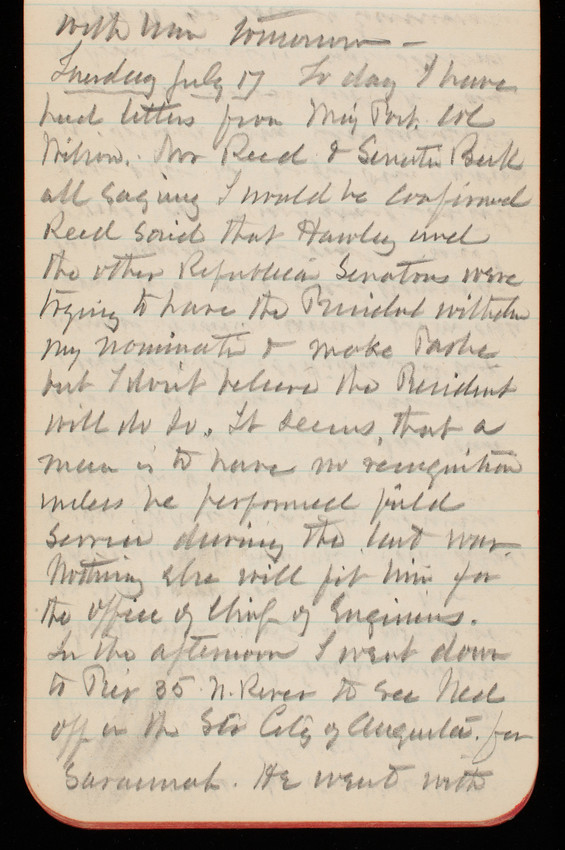 with him tomorrow -
Tuesday July 17 To day I have
had letters from Maj Post. Col
Wilson. Mr Reed & Senator Beck
all saying I would be confirmed
Reed said that Hawley and
the other Republican Senators were
trying to have the President withdraw
my nomination & make Parke
but I don't believe the President
will do so. It seems, that a
man is to have no recognition
unless he performed field
service during the last war.
Nothing else will fit him for
the office of Chief of Engineers.
In the afternoon I went down
to Pier 35 N. River to see Ned
off in the Str City of Augusta. for
Savannah. He went with